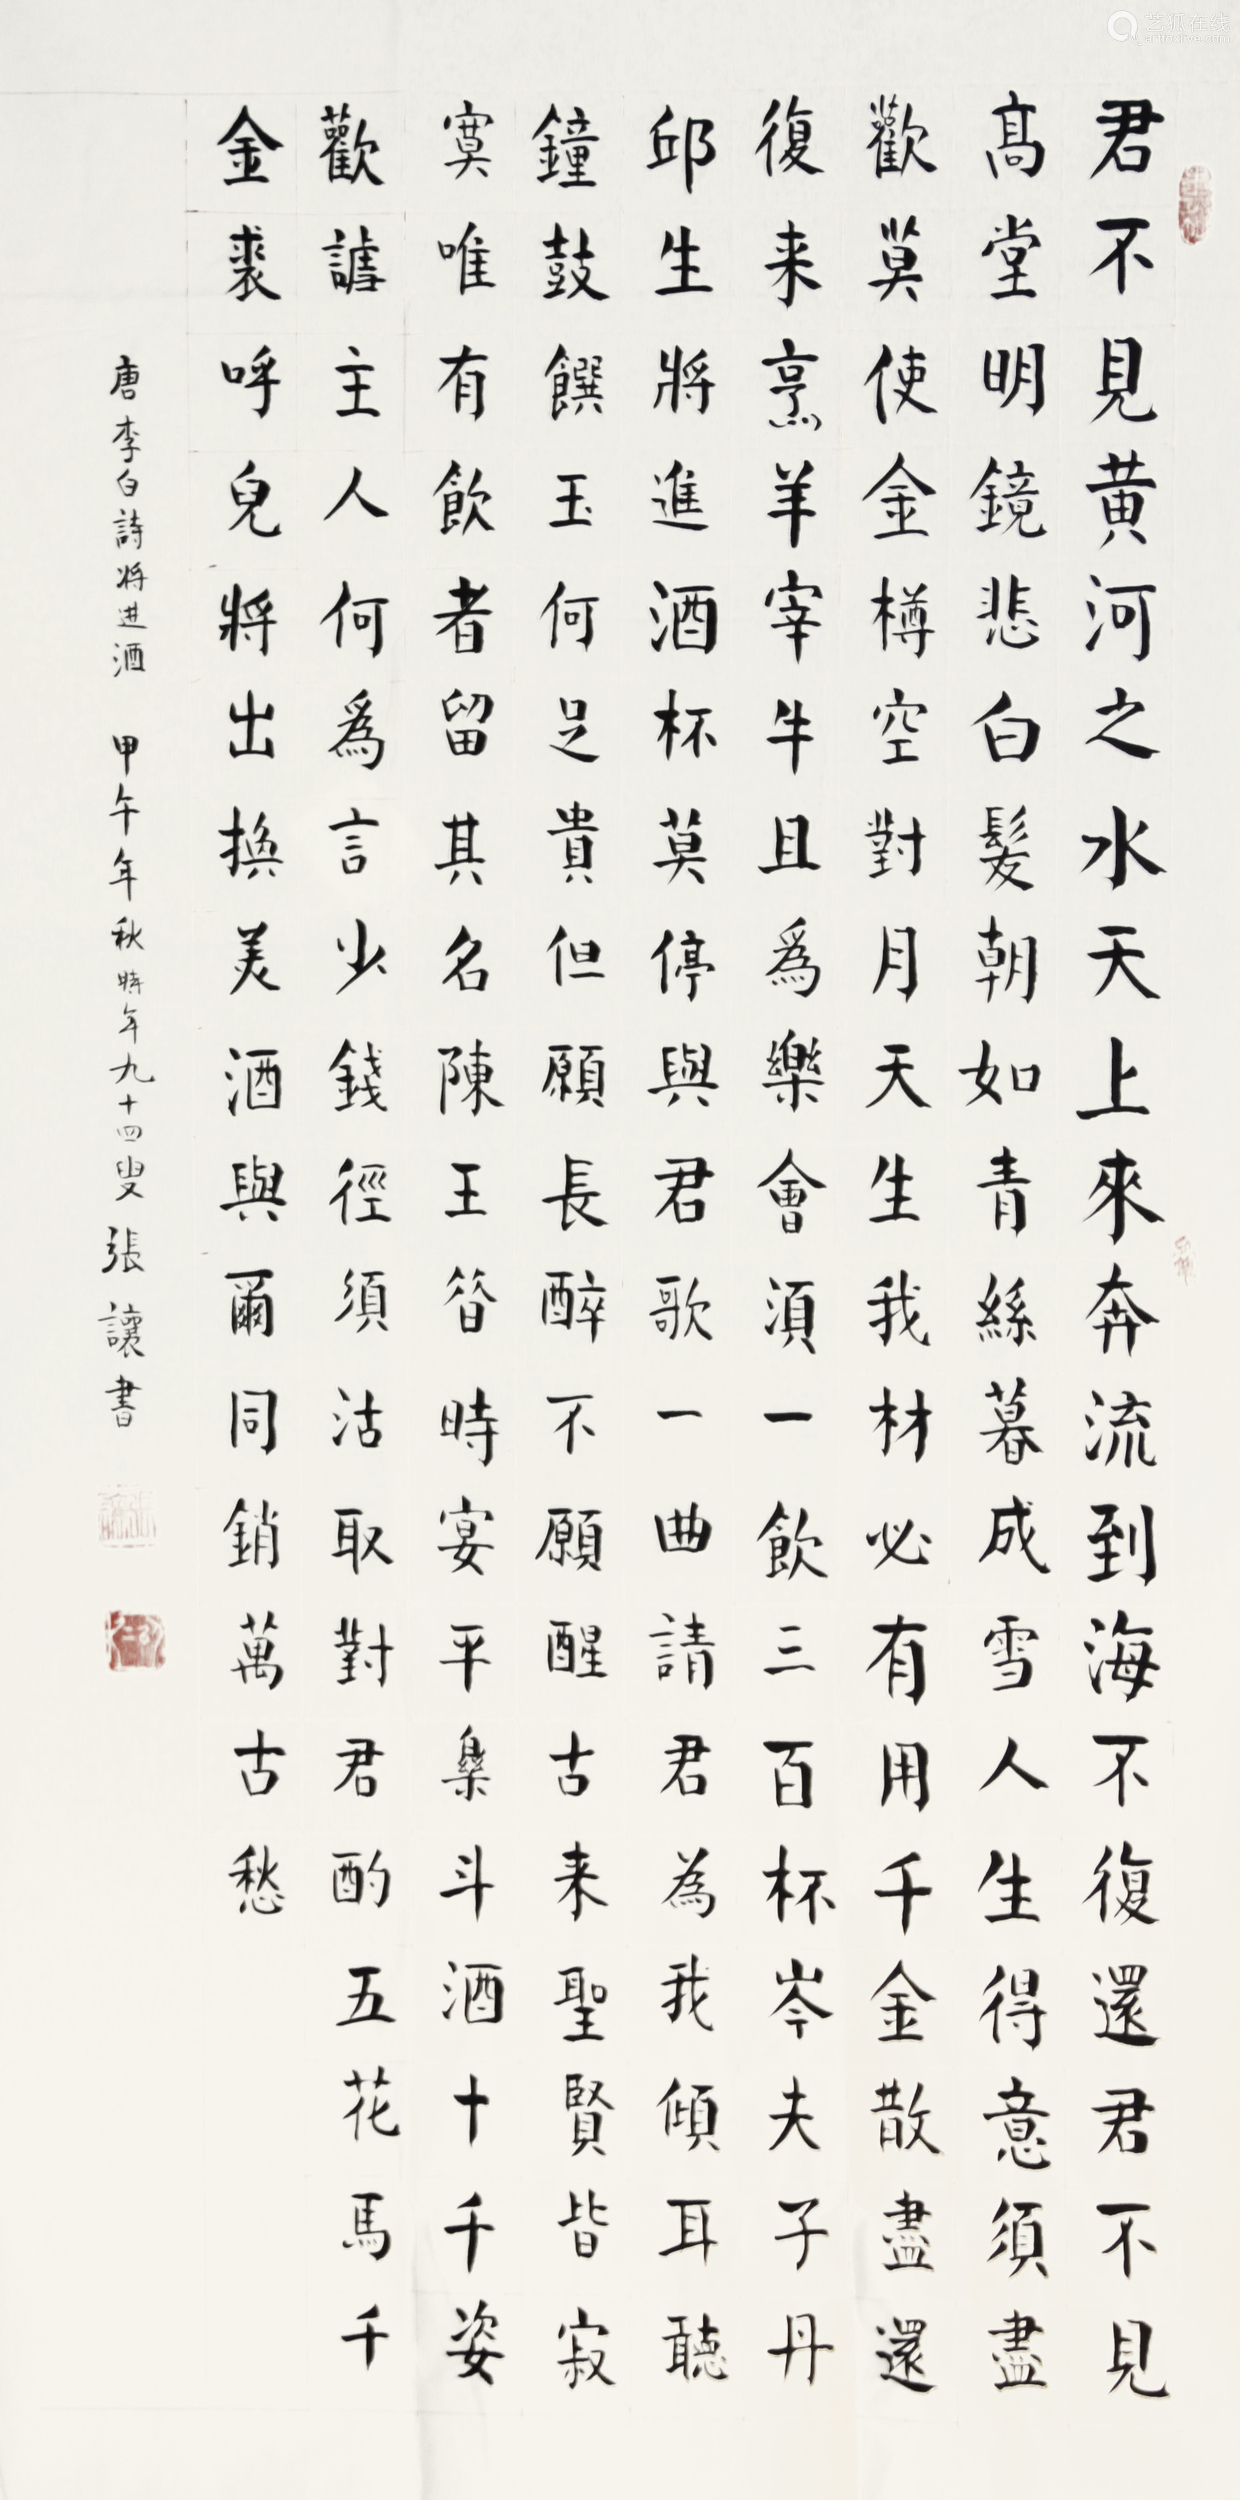 君不見黃河之水天上來奔流到海不復還君不見
高堂明鏡悲白髮朝如青絲暮成雪人生得意須盡
歡莫使金樽空對月天生我材必有用千金散盡還
復来烹羊宰牛且爲樂會須一飲三百杯岑夫子丹
邱生將進酒杯莫停與君歌一曲請君為我傾耳聽
鐘鼓饌玉何足貴但願長醉不願醒古来聖賢皆寂
寞唯有飲者留其名陳王昝時宴平樂斗酒十千姿
歡謔主人何爲言少錢徑須沽取對君酌五花馬千
金裘呼兒將出換美酒與爾同銷萬古愁
唐李白詩將进酒 甲午年秋時年九十四叟張讓書
艺狐在线
artfoxlive.com